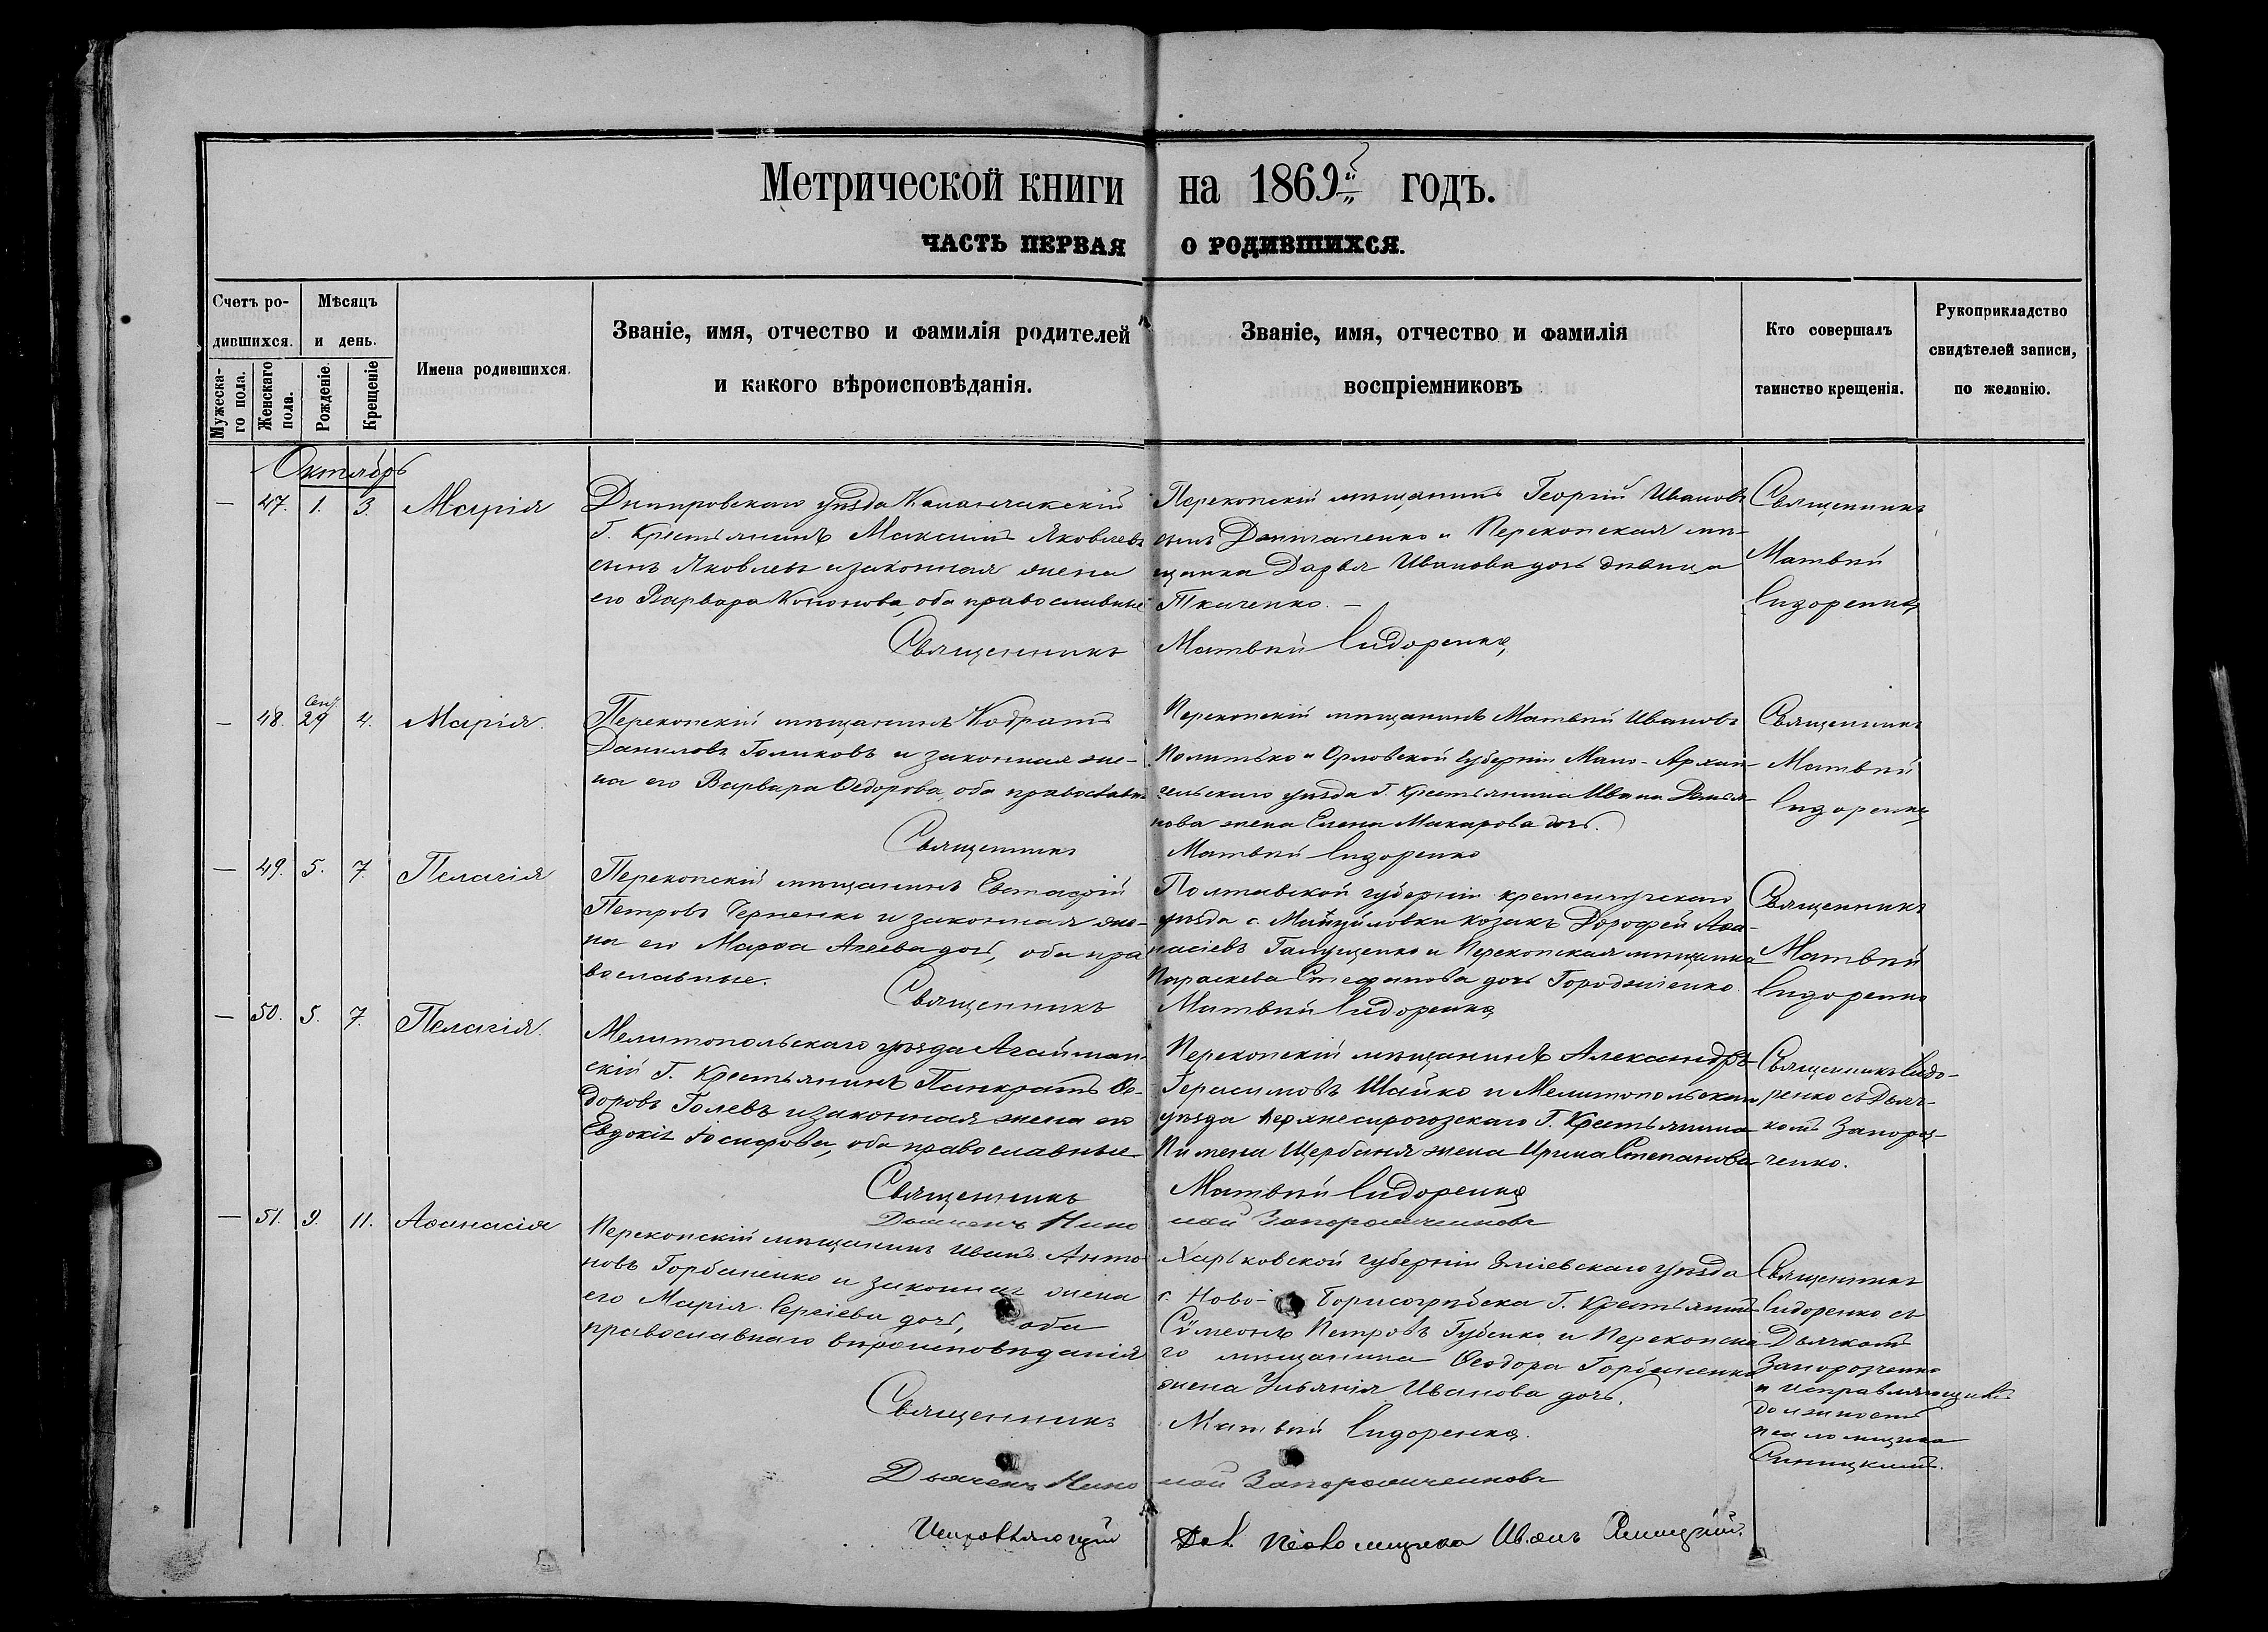 Метрической книги на 1869й годъ.
ЧАСТЬ ПЕРВАЯ О РОДИВШИХСЯ.
Счетъ родившихся.
Мужескаго пола.
Женскаго пола.
Мѣсяцъ и день.
Рожденіе.
Крещеніе
Имена родившихся.
Званіе, имя, отчество и фамилія родителей
и какого вѣроисповѣданія.
Званіе, имя, отчество и фамилія
воспріемниковъ
Кто совершалъ
таинство крещенія.
Рукоприкладство
свидѣтелей записи,
по желанію.
Октябрь
— 47. 1. 3. Марія
Днѣпровскаго уѣзда Каланчакскій
Г. Крестьянинъ Максимъ Яковлевъ
сынъ Яковлевъ и законная жена
его Варвара Кононова, оба православные
Перекопскій мѣщанинъ Георгій Ивановъ
сынъ и Перекопская мѣ-
щанка Дарья Иванова дочь дѣвица
Ткаченко. —
Священникъ
Матвѣй
Сидоренко
Священникъ Матвѣй Сидоренко
— 48. Сент. 29 4. Марія.
Перекопскій мѣщанинъ Кодратъ
Даниловъ Голиковъ и законная же-
на его Варвара Ѳедорова, оба православн
Перекопскій мѣщанинъ Матвѣй Ивановъ
Политько и Орловской Губерніи Мало-Архан-
гельскаго уѣзда Г. Крестьянина Ивана Демья-
нова жена Елена Макарова дочь.
Священникъ
Матвѣй
Сидоренко
Священникъ Матвѣй Сидоренко
— 49. 5. 7. Пелагія
Перекопскій мѣщанинъ Евстафій
Петровъ Черненко и законная же-
на его Марѳа Агеева дочь, оба пра
вославные.
Полтавской губерніи кременчугскаго
уѣзда с. козакъ Дорофей Аѳа-
насіевъ Галущенко и Перекопская мѣщанка
Параскева Стефанова дочь
Священникъ
Матвѣй
Сидоренко
Священникъ Матвѣй Сидоренко
— 50. 5. 7. Пелагія.
Мелитопольскаго уѣзда Агайман-
скій Г. Крестьянинъ Панкратъ Ѳе-
доровъ Голевъ и законная жена его
Евдокія Іосифова, оба православные
Перекопскій мѣщанинъ Александръ
Герасимовъ Шайко и Мелитопольскаго
уѣзда Верхнесирогозскаго Г. Крестьянина
Пимена Щербаня жена Ирина Степанова
Священникъ Сидо-
ренко съ Дьяч-
комъ Запорож-
ченко.
Священникъ Матвѣй Сидоренко
Дьячекъ Николай Запорожченковъ
— 51. 9. 11. Аѳанасія
Перекопскій мѣщанинъ Иванъ Анто-
новъ Горбаненко и законная жена
его Марія Сергіева дочь, оба
православнаго вѣроисповѣданія
Харьковской губерніи Зміевскаго уѣзда
с. Ново-Борисоглѣбска Г. Крестьянинъ
Сѵмеонъ Петровъ Губенко и Перекопска
го мѣщанина Ѳеодора Горбаненка
жена Ульянія Иванова дочь.
Священникъ
Сидоренко съ
Дьячкомъ
Запорозченко
и исправляющимъ
должность
псаломщика
Синицкимъ.
Священникъ Матвѣй Сидоренко.
Дьячекъ Николай Запорожченковъ
Исправляющій Дол. псаломщика Иванъ Синицкій.